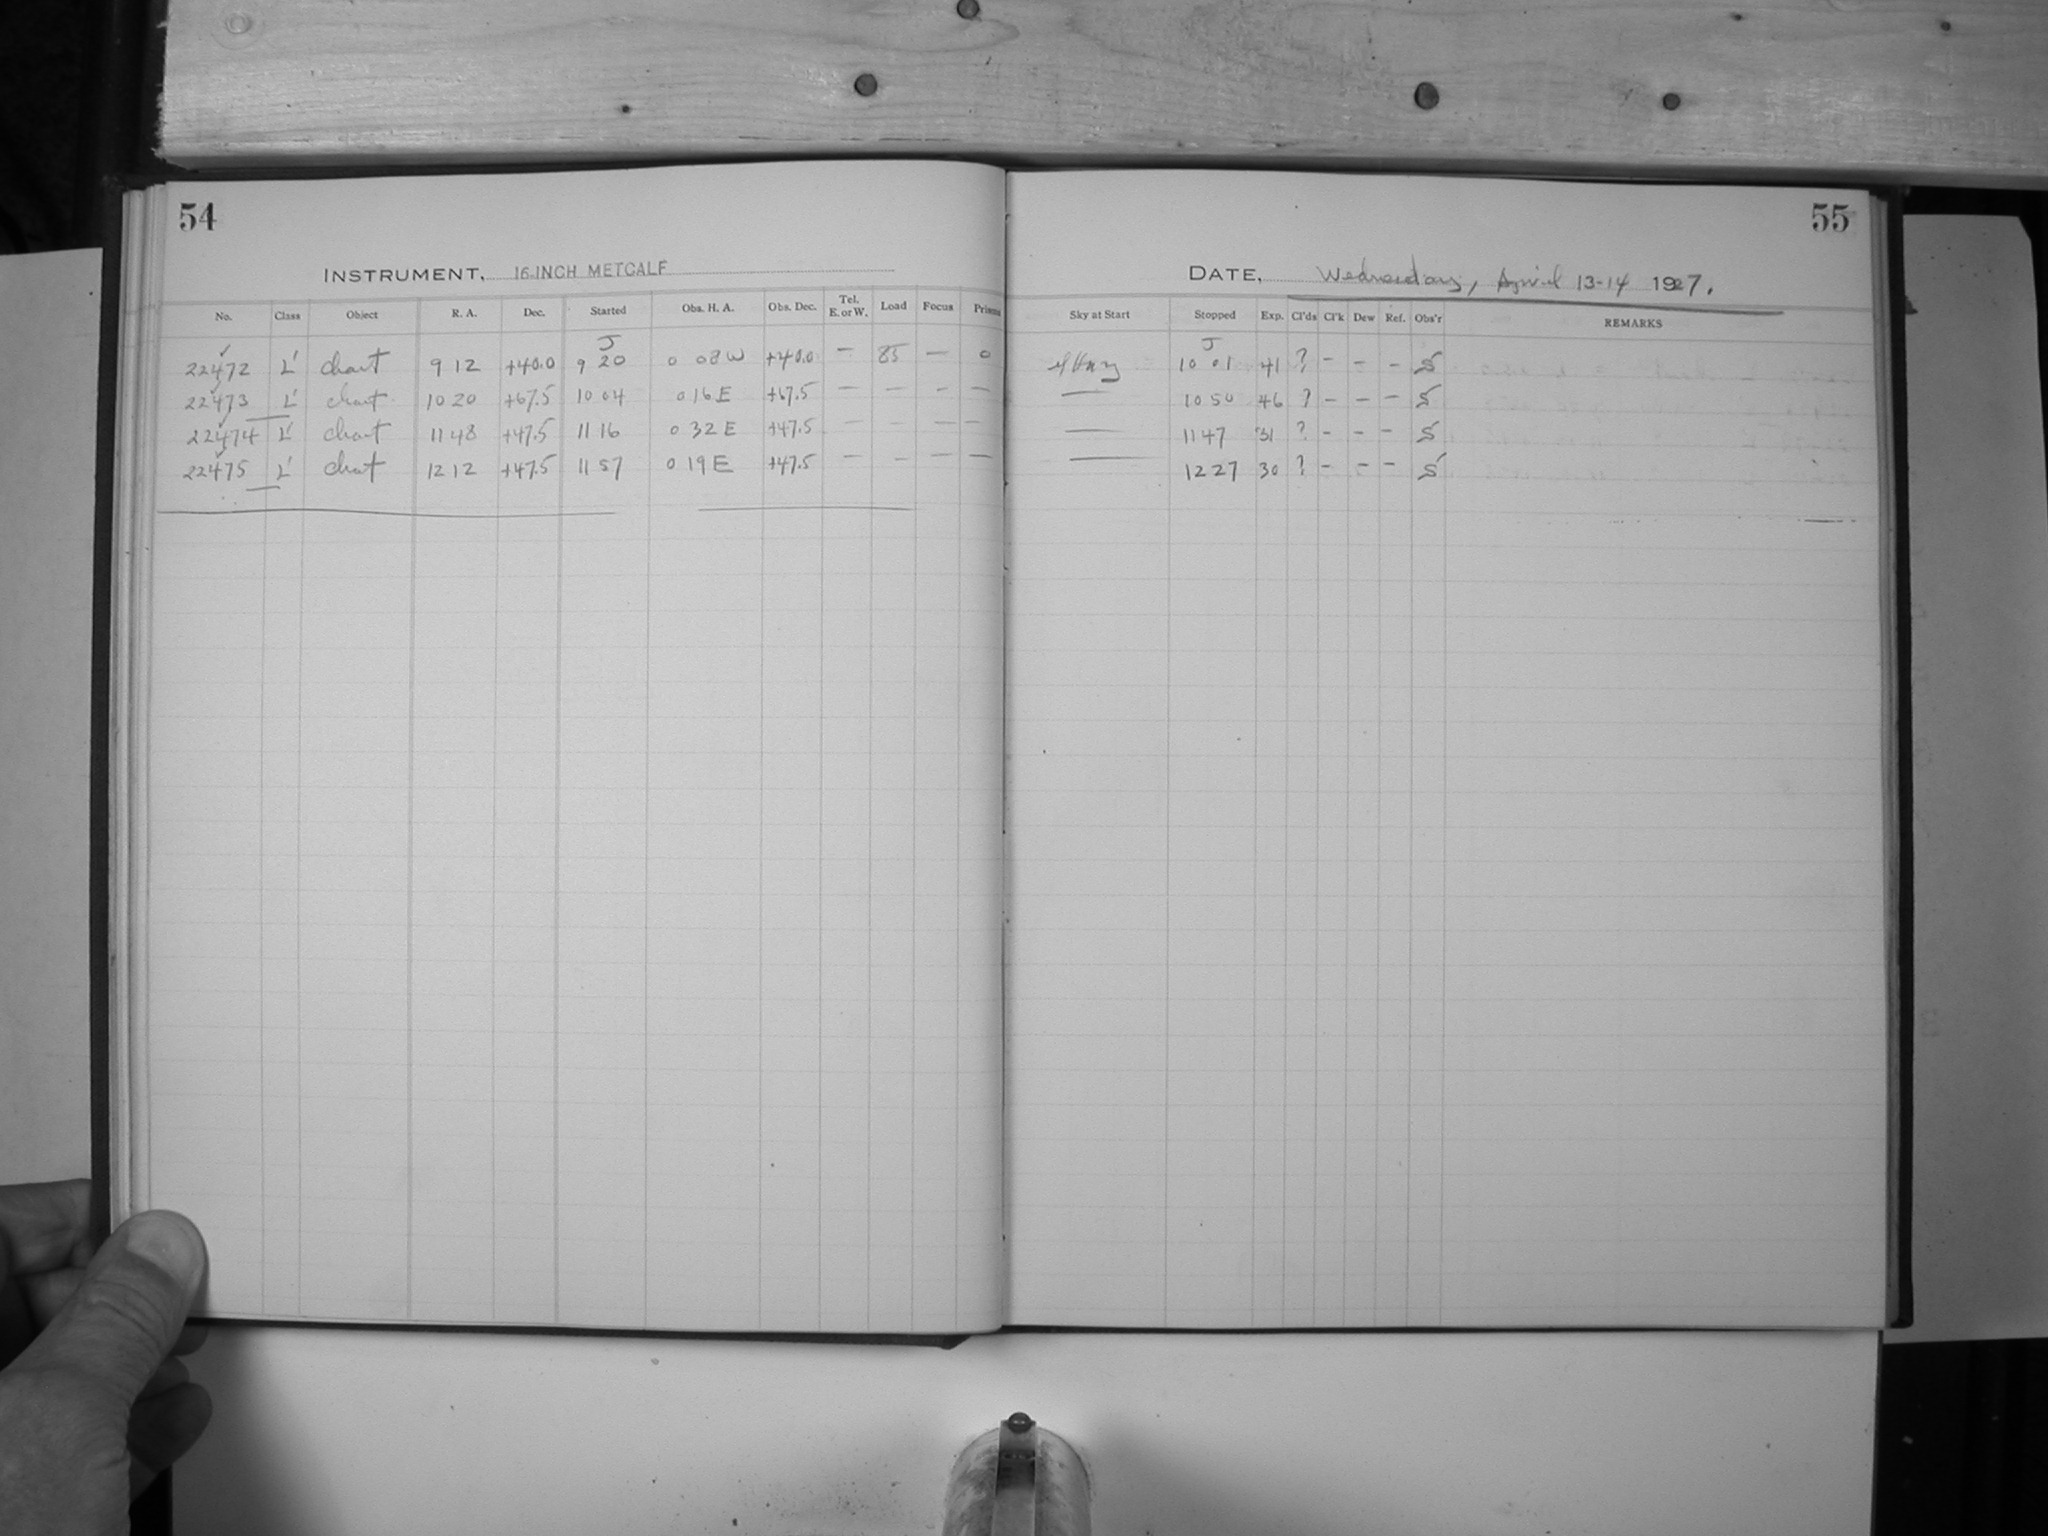 54
INSTRUMENT, 16-INCH METCALF
No. Class Object R. A. Dec. Started Obs. H. A. Obs. Dec. Tel. E. or W. Load Focus Prism
J
22472 L' chart 9 12 +40.0 9 20 0 08 W +40.0 — 85 — 0
22473 L' chart 10 20 +67.5 10 04 0 16 E +67.5 — — — —
22474 L' chart 11 48 +47.5 11 16 0 32 E +47.5 — — — —
22475 L' chart 12 12 +47.5 11 57 0 19 E +47.5 — — — —
55
DATE, Wednesday, April 13-14 1927.
Sky at Start Stopped Exp. Cl'ds Cl'k Dew Ref. Obs'r REMARKS
J
10 01 41 ? – – – S
— 10 50 46 ? – – – S
— 11 47 31 ? – – – S
— 12 27 30 ? – – – S